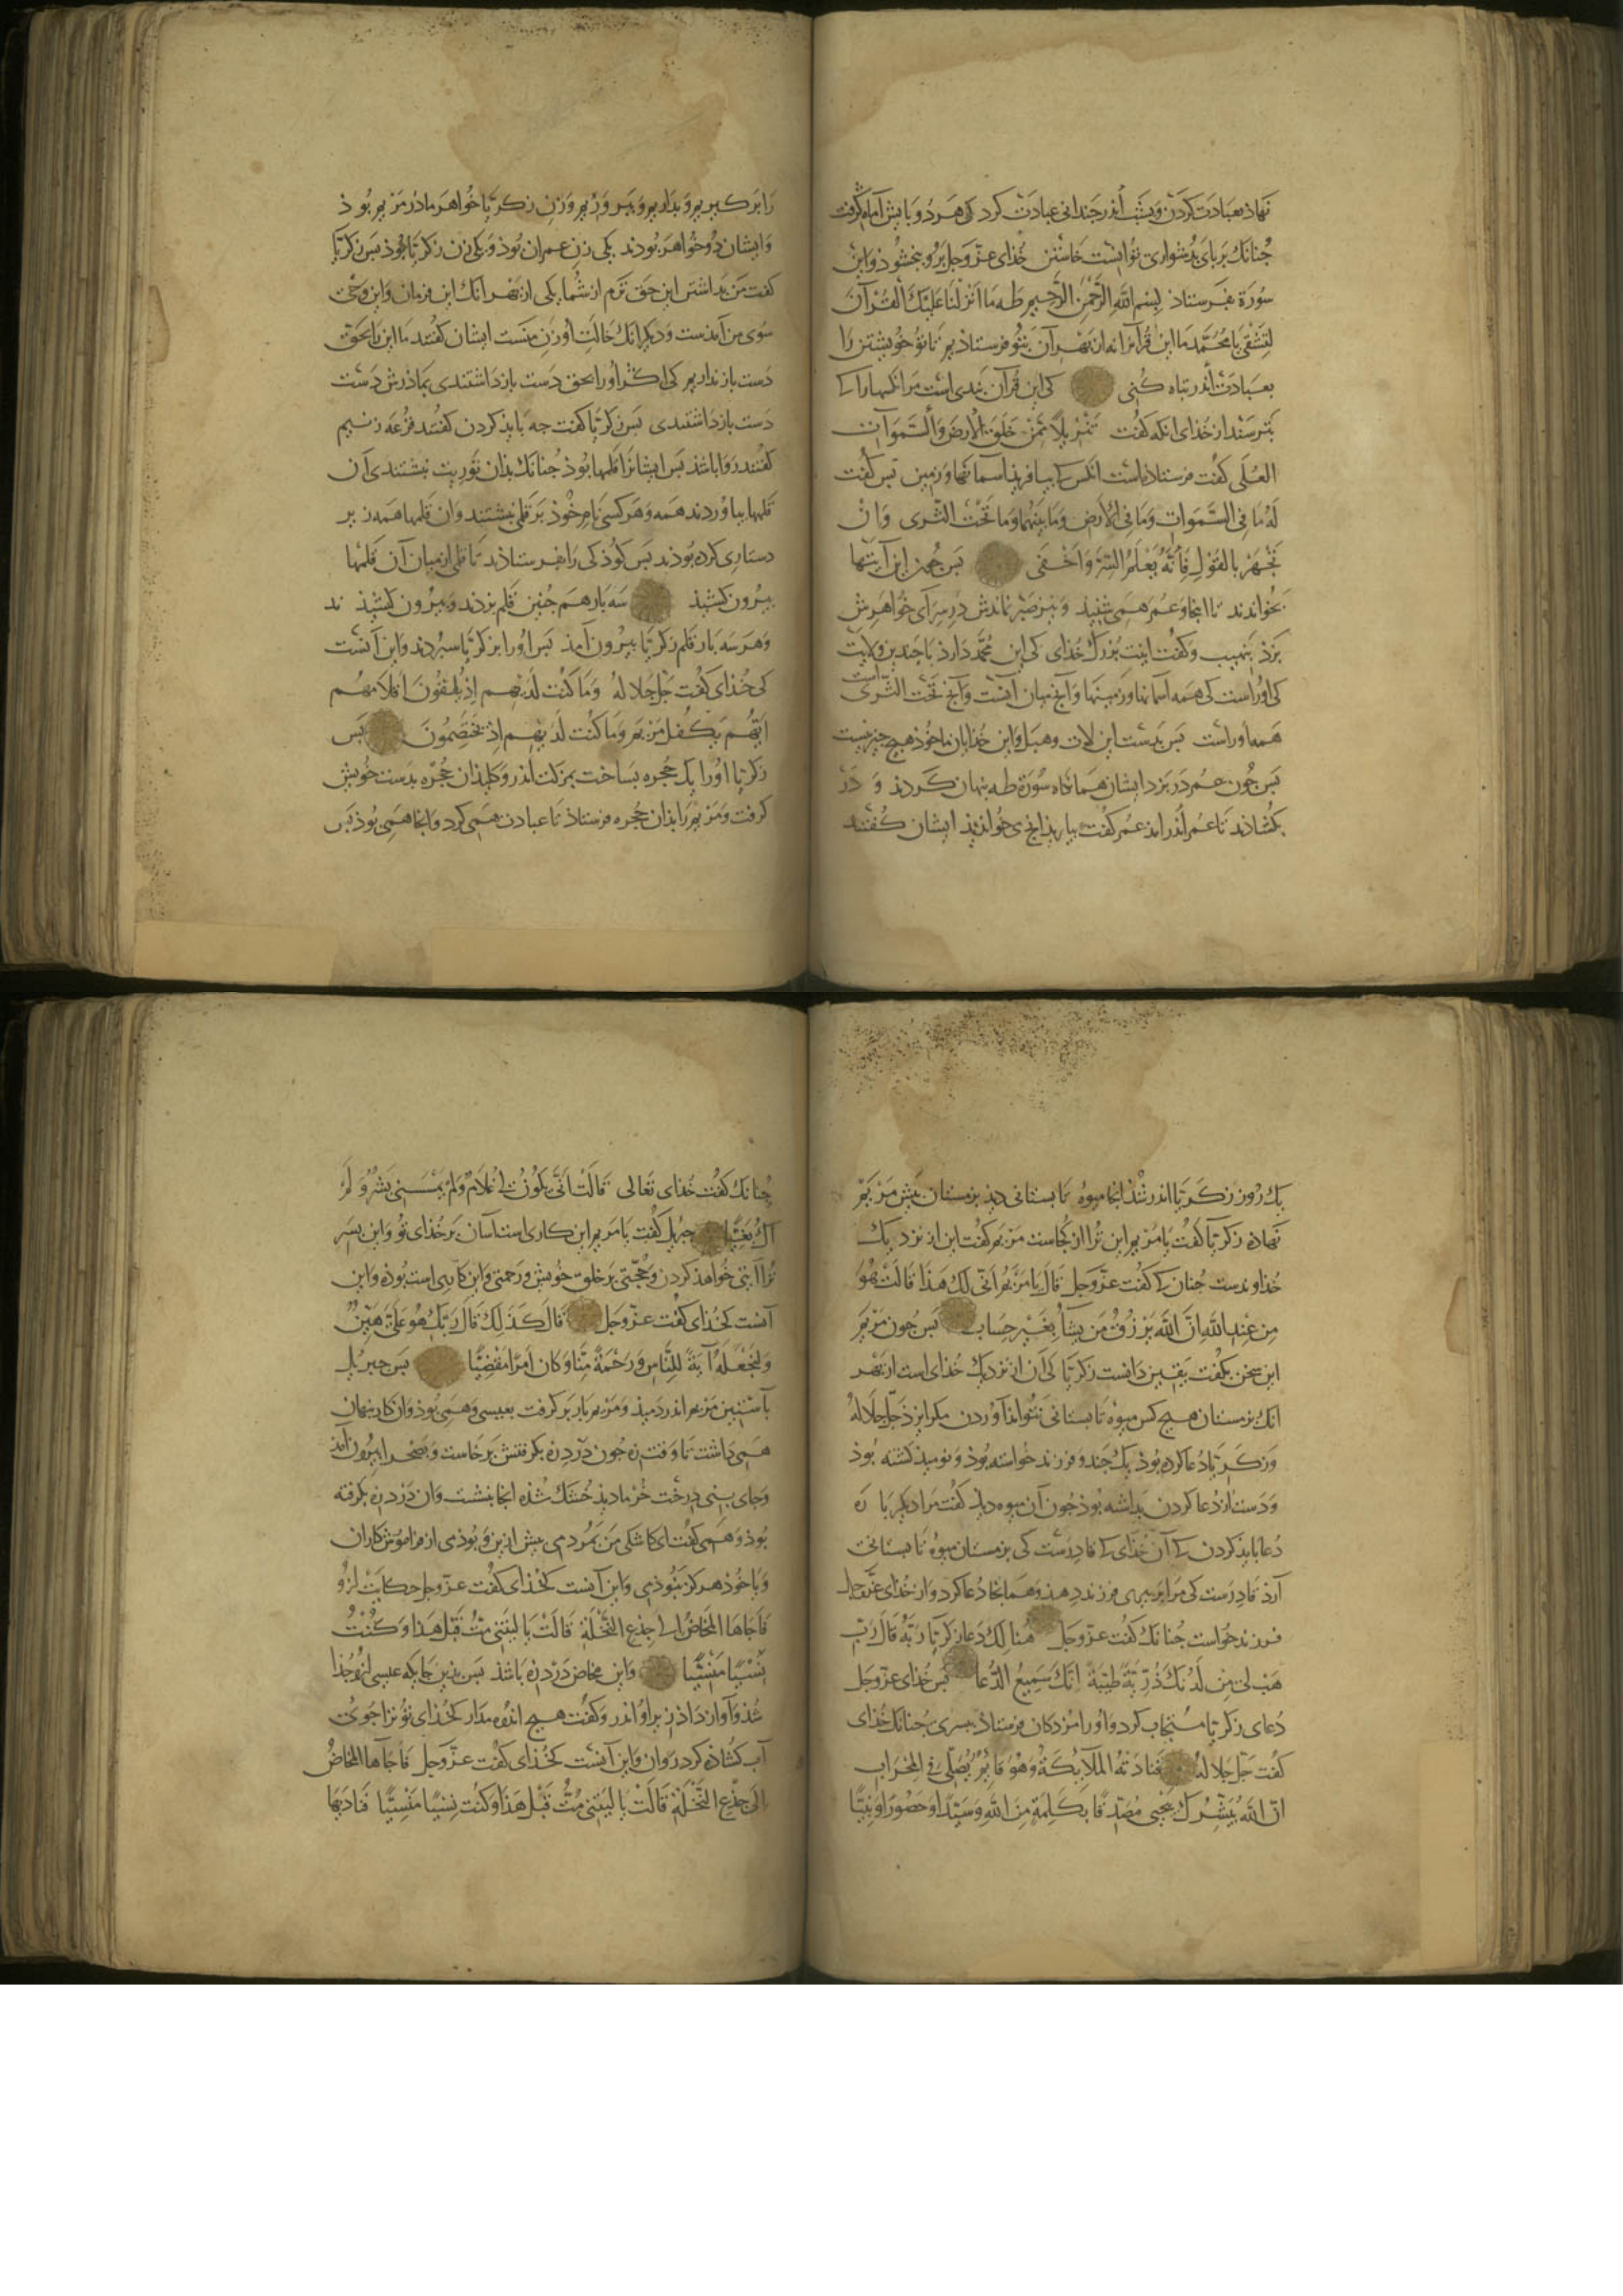 نهاذ بعبادت کردن و بشب اندر چندانی عبادت کرد کی هر دو پایش آماس گرفت
چنانک بر پای بدشواری توانست خاستن خدای عز وجل برو ببخشوذ و این
سورة بفرستاذ بسم الله الرحمن الرحیم طه ما انزلنا علیک القرآن
لتشقی یا محمد ما این قرآن نه از بهر آن بتو فرستاذیم تا تو خویشتن را
بعبادت اندر تباه کنی کی این قرآن پندی است مر آنکسها را کی
بترسند از خدای آنکه گفت تنزیلا ممن خلق الارض والسموات
العلی گفت فرستاذه است آنکس کی بیافرید آسمانها و زمین پس گفت
له ما فی السموات وما فی الارض وما بینهما وما تحت الثری وان
تجهر بالقول فانه یعلم السر واخفی پس چون این آیتها
بخواندند تا اینجا و عمر همی شنیذ و نیز صبر نماندش در سرای خواهرش
بزد بنهیب و گفت اینت بزرگ خدای کی این محمد دارذ با چندین ولایت
کی او راست کی همه آسمانها و زمینها و آنچ میان آنست و آنچ تحت الثری است
همه او راست پس بدست این لات و هبل و این خدایان ما خوذ هیچ چیز نیست
پس چون عمر در بزد ایشان همانگاه سورة طه پنهان کردند و در
بگشاذند تا عمر اندر امذ عمر گفت بیاریذ آنچ می خواندیذ ایشان گفتند
را بزرگ بریم و بداریم و بپروریم و زن زکریا خواهر مادر مریم بوذ
و ایشان دو خواهر بودند یکی زن عمران بوذ و یکی زن زکریا بوذ پس زکریا
گفت من بداشتن این حق ترم از شما یکی از بهر آنک این فرمان و این وحی
سوی من آمذست و دیگر آنک خالت او زن منست ایشان گفتند ما این را بحق
دست باز نداریم کی اگر او را بحق دست بازداشتندی بماذرش دست
دست بازداشتندی پس زکریا گفت چه باید کردن گفتند قرعه زنیم
گفتند روا باشذ پس ایشانرا قلمها بوذ چنانک بذان توریت نبشتندی آن
قلمها بیاوردند همه و هر کسی نام خوذ بر قلم نبشتند و آن قلمها همه زیر
دستاری کرده بوذند پس کوذکی را بفرستاذند تا قلمی از میان آن قلمها
بیرون کشیذ سه بار هم چنین قلم بزدند و بیرون کشیذند
و هر سه بار قلم زکریا بیرون آمذ پس او را بزکریا سپردند و این آنست
کی خذای گفت جل جلاله وما کنت لدیهم اذ یلقون اقلامهم
ایهم یکفل مریم وما کنت لدیهم اذ یختصمون پس
زکریا او را یک حجره بساخت بمزکت اندر و کلید آن حجره بدست خویش
گرفت و مریم را بذان حجره فرستاذ تا عبادت همی کرد و آنجا همی بوذ پس
یک روز زکریا اندر شذ آنجا میوه تابستانی دیذ بزمستان پیش مریم
نهاده زکریا گفت یا مریم این ترا از کجاست مریم گفت این از نزدیک
خداوندست چنان کی گفت عز وجل قال یا مریم انی لک هذا قالت هو
من عند الله ان الله یرزق من یشآ بغیر حساب پس چون مریم
این سخن بگفت بیقین دانست زکریا کی آن از نزدیک خدای است از بهر
انک بزمستان هیچ کس میوه تابستانی نتواند آوردن مگر ایزذ جل جلاله
و زکریا دعا کرده بوذ یک چند و فرزند خواسته بوذ و نومیذ گشته بوذ
و دست از دعا کردن بداشته بوذ چون آن میوه دید گفت مرا دیگر باره
دعا بایذ کردن کی آن خدای کی قادرست کی بزمستان میوه تابستانی
آرذ قادرست کی مرا بپیری فرزند دهذ و همانجا دعا کرد و از خدای عز وجل
فرزند خواست چنانک گفت عز وجل هنالک دعا زکریا ربه قال رب
هب لی من لدنک ذریة طیبة انک سمیع الدعا پس خدای عز وجل
دعای زکریا مستجاب کرد و او را مژدگان فرستاذ بپسری چنانک خدای
گفت جل جلاله فنادته الملآئکة وهو قائم یصلی فی المحراب
ان الله یبشرک بیحیی مصدقا بکلمة من الله وسیدا وحصورا ونبیا
چنانک گفت خذای تعالی قالت انی یکون لی غلام ولم یمسسنی بشر ولم
اک بغیا جبریل گفت یا مریم این کاری است آسان بر خذای تو و این پسر
ترا آیتی خواهذ کردن و حجتی بر خلق خویش و رحمتی و این کاری است بوذه و این
آنست کخذای گفت عز وجل قال کذلک قال ربک هو علی هین
ولنجعله آیة للناس ورحمة منا وکان امرا مقضیا پس جبریل
بآستین مریم اندر دمیذ و مریم بار برگرفت بعیسی و همی بوذ و آن کار پنهان
همی داشت تا وقت زه چون درد زه بگرفتش برخاست و بصحرا بیرون آمذ
و جای بنی درخت خرما دیذ خشک شذه آنجا بنشست و آن درد زه بگرفته
بوذ و همی گفت ای کاشکی من بمردمی پیش ازین و بوذمی از فراموش کاران
و یا خوذ هرگز نبوذمی و این آنست کخذای گفت عز وجل حکایت ازو
فاجاها المخاض الی جذع النخلة قالت یا لیتنی مت قبل هذا وکنت
نسیا منسیا و این مخاض درد زه باشذ پس بذین جایگه عیسی ازو جذا
شذ و آواز داذ زیر او اندر و گفت هیچ اندوه مدار کخذای تو ترا جوی
آب گشاذه کرد روان و این آنست کخذای گفت عز وجل فاجآها المخاض
الی جذع النخلة قالت یا لیتنی مت قبل هذا وکنت نسیا منسیا فنادیها